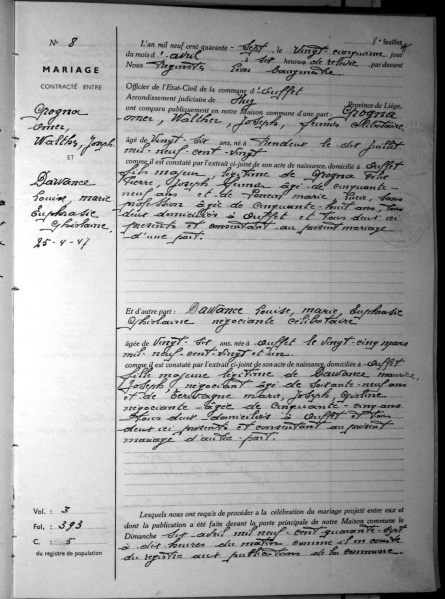 8e feuillet
N° 8
MARIAGE
CONTRACTÉ ENTRE
Grogna
Omer,
Walther, Joseph
ET
Dawance
Louise, Marie
Euphrasie
Ghislaine
25-4-47
L'an mil neuf cent quarante-sept, le vingt-cinquième jour
du mois d'avril à six heures de relevée, par devant
Nous
bourgmestre
Officier de l'Etat-Civil de la commune d'Ouffet
Arrondissement judiciaire de Huy Province de Liège.
ont comparu publiquement en notre Maison commune d'une part : Grogna
Omer, Walther, Joseph, fermier, célibataire,
âgé de vingt-six ans, né à Vlendeut le dix juillet
mil-neuf cent-vingt
comme il est constaté par l'extrait ci-joint de son acte de naissance, domicilié à Ouffet
fils majeur, légitime de Grogna
Pierre, Joseph, fermier âgé de cinquante-
neuf ans et de Poncin Marie, Lucie, sans
profession âgée de cinquante-huit ans, tous
deux domiciliés à Ouffet et tous deux ici
présents et consentant au présent mariage
d'une part.
Et d'autre part : Dawance Louise, Marie, Euphrasie
Ghislaine négociante célibataire
âgée de vingt-six ans, née à Ouffet le vingt-cinq mars
mil-neuf-cent-vingt et un.
comme il est constaté par l'extrait ci-joint de son acte de naissance, domiciliée à Ouffet
fille majeure légitime de Dawance Maurice,
Joseph, négociant âgé de soixante-neuf ans
et de Marie, Joseph,
négociante âgée de cinquante-cinq ans
tous deux domiciliés à Ouffet et tous
deux ici présents et consentant au présent
mariage d'autre part.
Vol. : 3
Fol. : 393
C. : 5
du registre de population
Lesquels nous ont requis de procéder à la célébration du mariage projeté entre eux et
dont la publication a été faite devant la porte principale de notre Maison commune le
Dimanche six avril mil neuf-cent quarante-sept
à dix heures du matin comme il en conste
du registre aux publications de la commune.